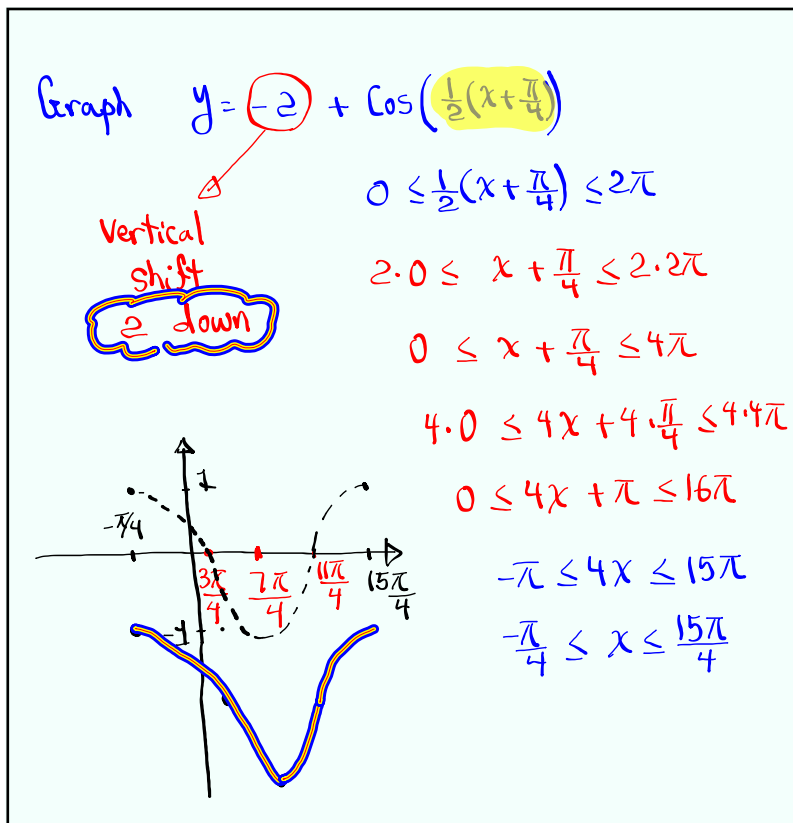 Graph y = -2 + Cos(½(x + π/4))
0 ≤ ½(x + π/4) ≤ 2π
Vertical
Shift
2 down
2·0 ≤ x + π/4 ≤ 2·2π
0 ≤ x + π/4 ≤ 4π
4·0 ≤ 4x + 4·π/4 ≤ 4·4π
0 ≤ 4x + π ≤ 16π
-π ≤ 4x ≤ 15π
-π/4 ≤ x ≤ 15π/4
1
-π/4
3π/4 7π/4 11π/4 15π/4
-1